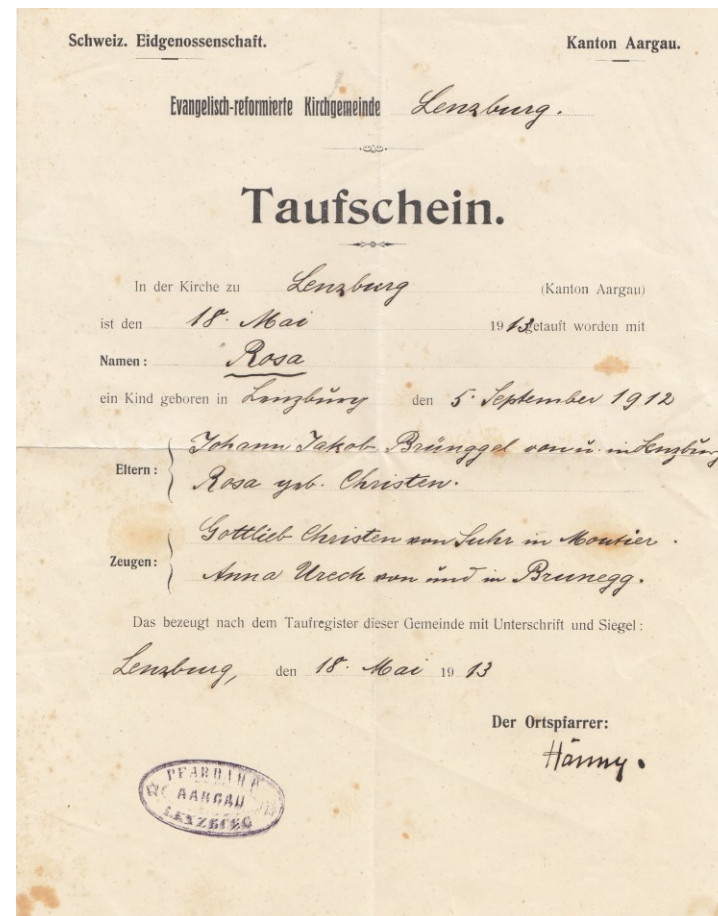 Schweiz. Eidgenossenschaft. Kanton Aargau.
Evangelisch-reformierte Kirchgemeinde Lenzburg.
Taufschein.
In der Kirche zu Lenzburg (Kanton Aargau)
ist den 18. Mai 1913 getauft worden mit
Namen: Rosa
ein Kind geboren in Lenzburg den 5. September 1912
Eltern: Johann Jakob Brünggel von u. in Lenzburg
Rosa geb. Christen.
Zeugen: Gottlieb Christen von Suhr in Moutier.
Anna Urech von und in Brunegg.
Das bezeugt nach dem Taufregister dieser Gemeinde mit Unterschrift und Siegel:
Lenzburg, den 18. Mai 1913
Der Ortspfarrer:
Hänny.
AARGAU